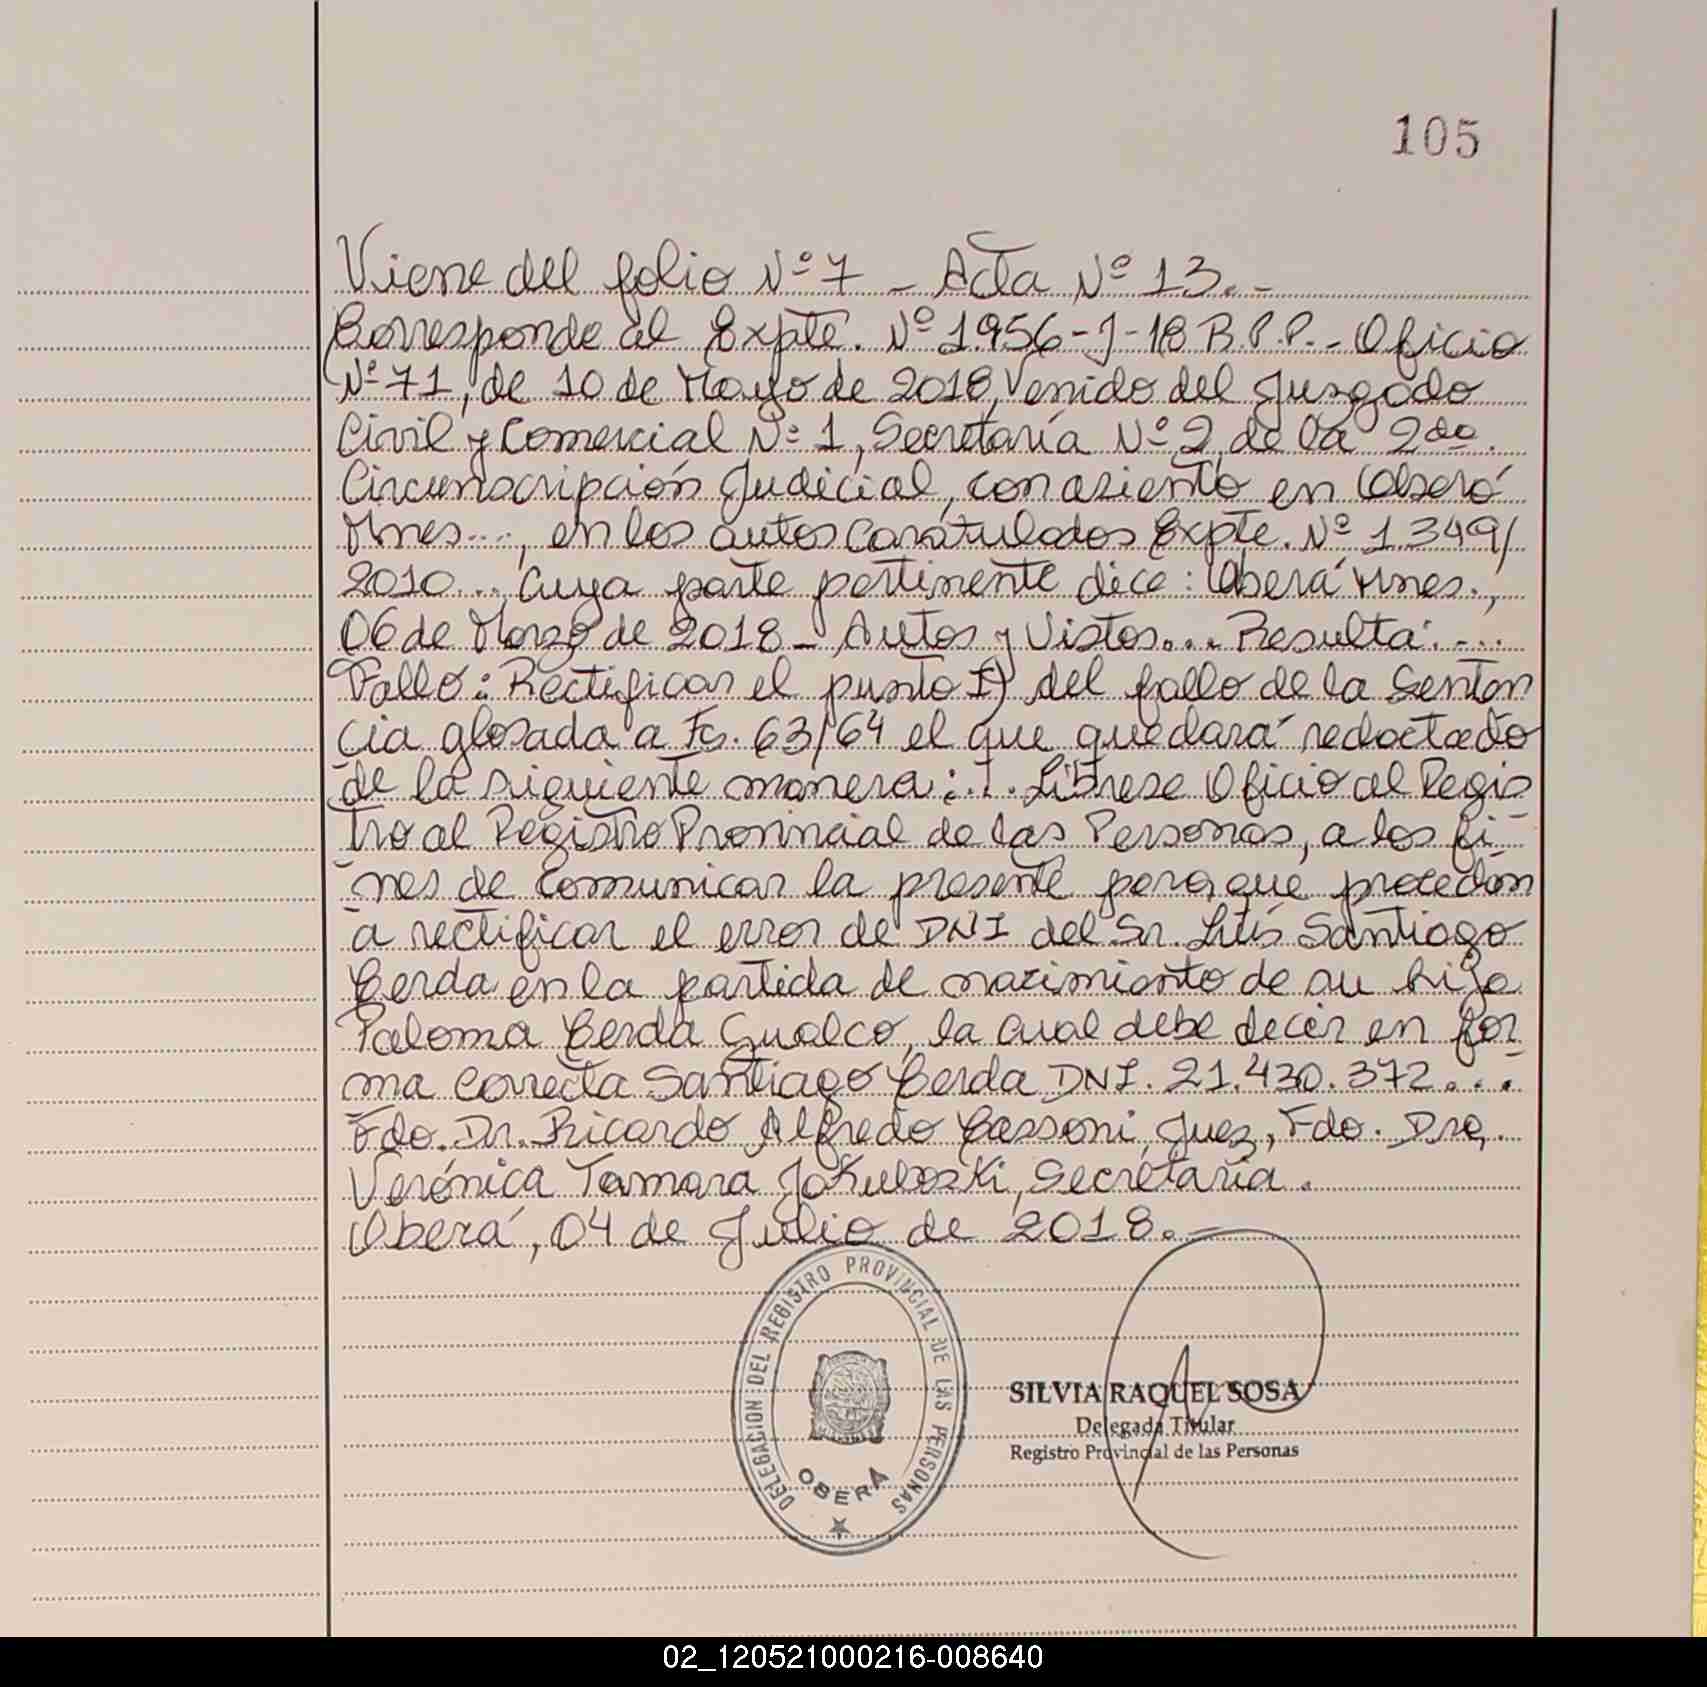 105
Viene del folio Nº 7 - Acta Nº 13.-
Corresponde al Expte. Nº 1956-J-18 R.P.P.- Oficio
Nº 71, de 10 de Mayo de 2018, Venido del Juzgado
Civil y Comercial Nº 1, Secretaría Nº 2, de la 2da.
Circunscripción Judicial, con asiento en Oberá
Mnes..., en los autos Caratulados Expte. Nº 1349/
2010... Cuya parte pertinente dice: Oberá Mnes.,
06 de Marzo de 2018 - Autos y Vistos... Resulta:...
Fallo: Rectificar el punto I) del fallo de la Senten
cia glosada a Fs. 63/64 el que quedará redactado
de la siguiente manera:... Líbrese Oficio al Regis
tro al Registro Provincial de las Personas, a los fi-
nes de comunicar la presente para que procedan
a rectificar el error de DNI del Sr. Luís Santiago
Cerda en la partida de nacimiento de su hija
Paloma Cerda Gualco, la cual debe decir en for-
ma correcta Santiago Cerda DNI. 21.430.372...
Fdo. Dr. Ricardo Alfredo Cassoni, Juez, Fdo. Dra.
Verónica Tamara Jakuboski, Secretaria.
Oberá, 04 de Julio de 2018.-
DELEGACION DEL REGISTRO PROVINCIAL DE LAS PERSONAS
OBERÁ
SILVIA RAQUEL SOSA
Delegada Titular
Registro Provincial de las Personas
02_120521000216-008640